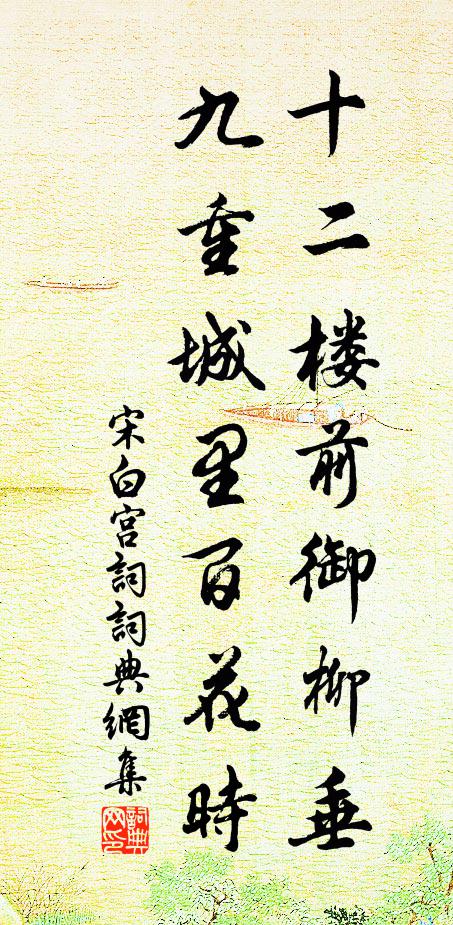 十二楼前御柳垂
九重城里百花時
宋白宫詞詞典網集
詞典网印